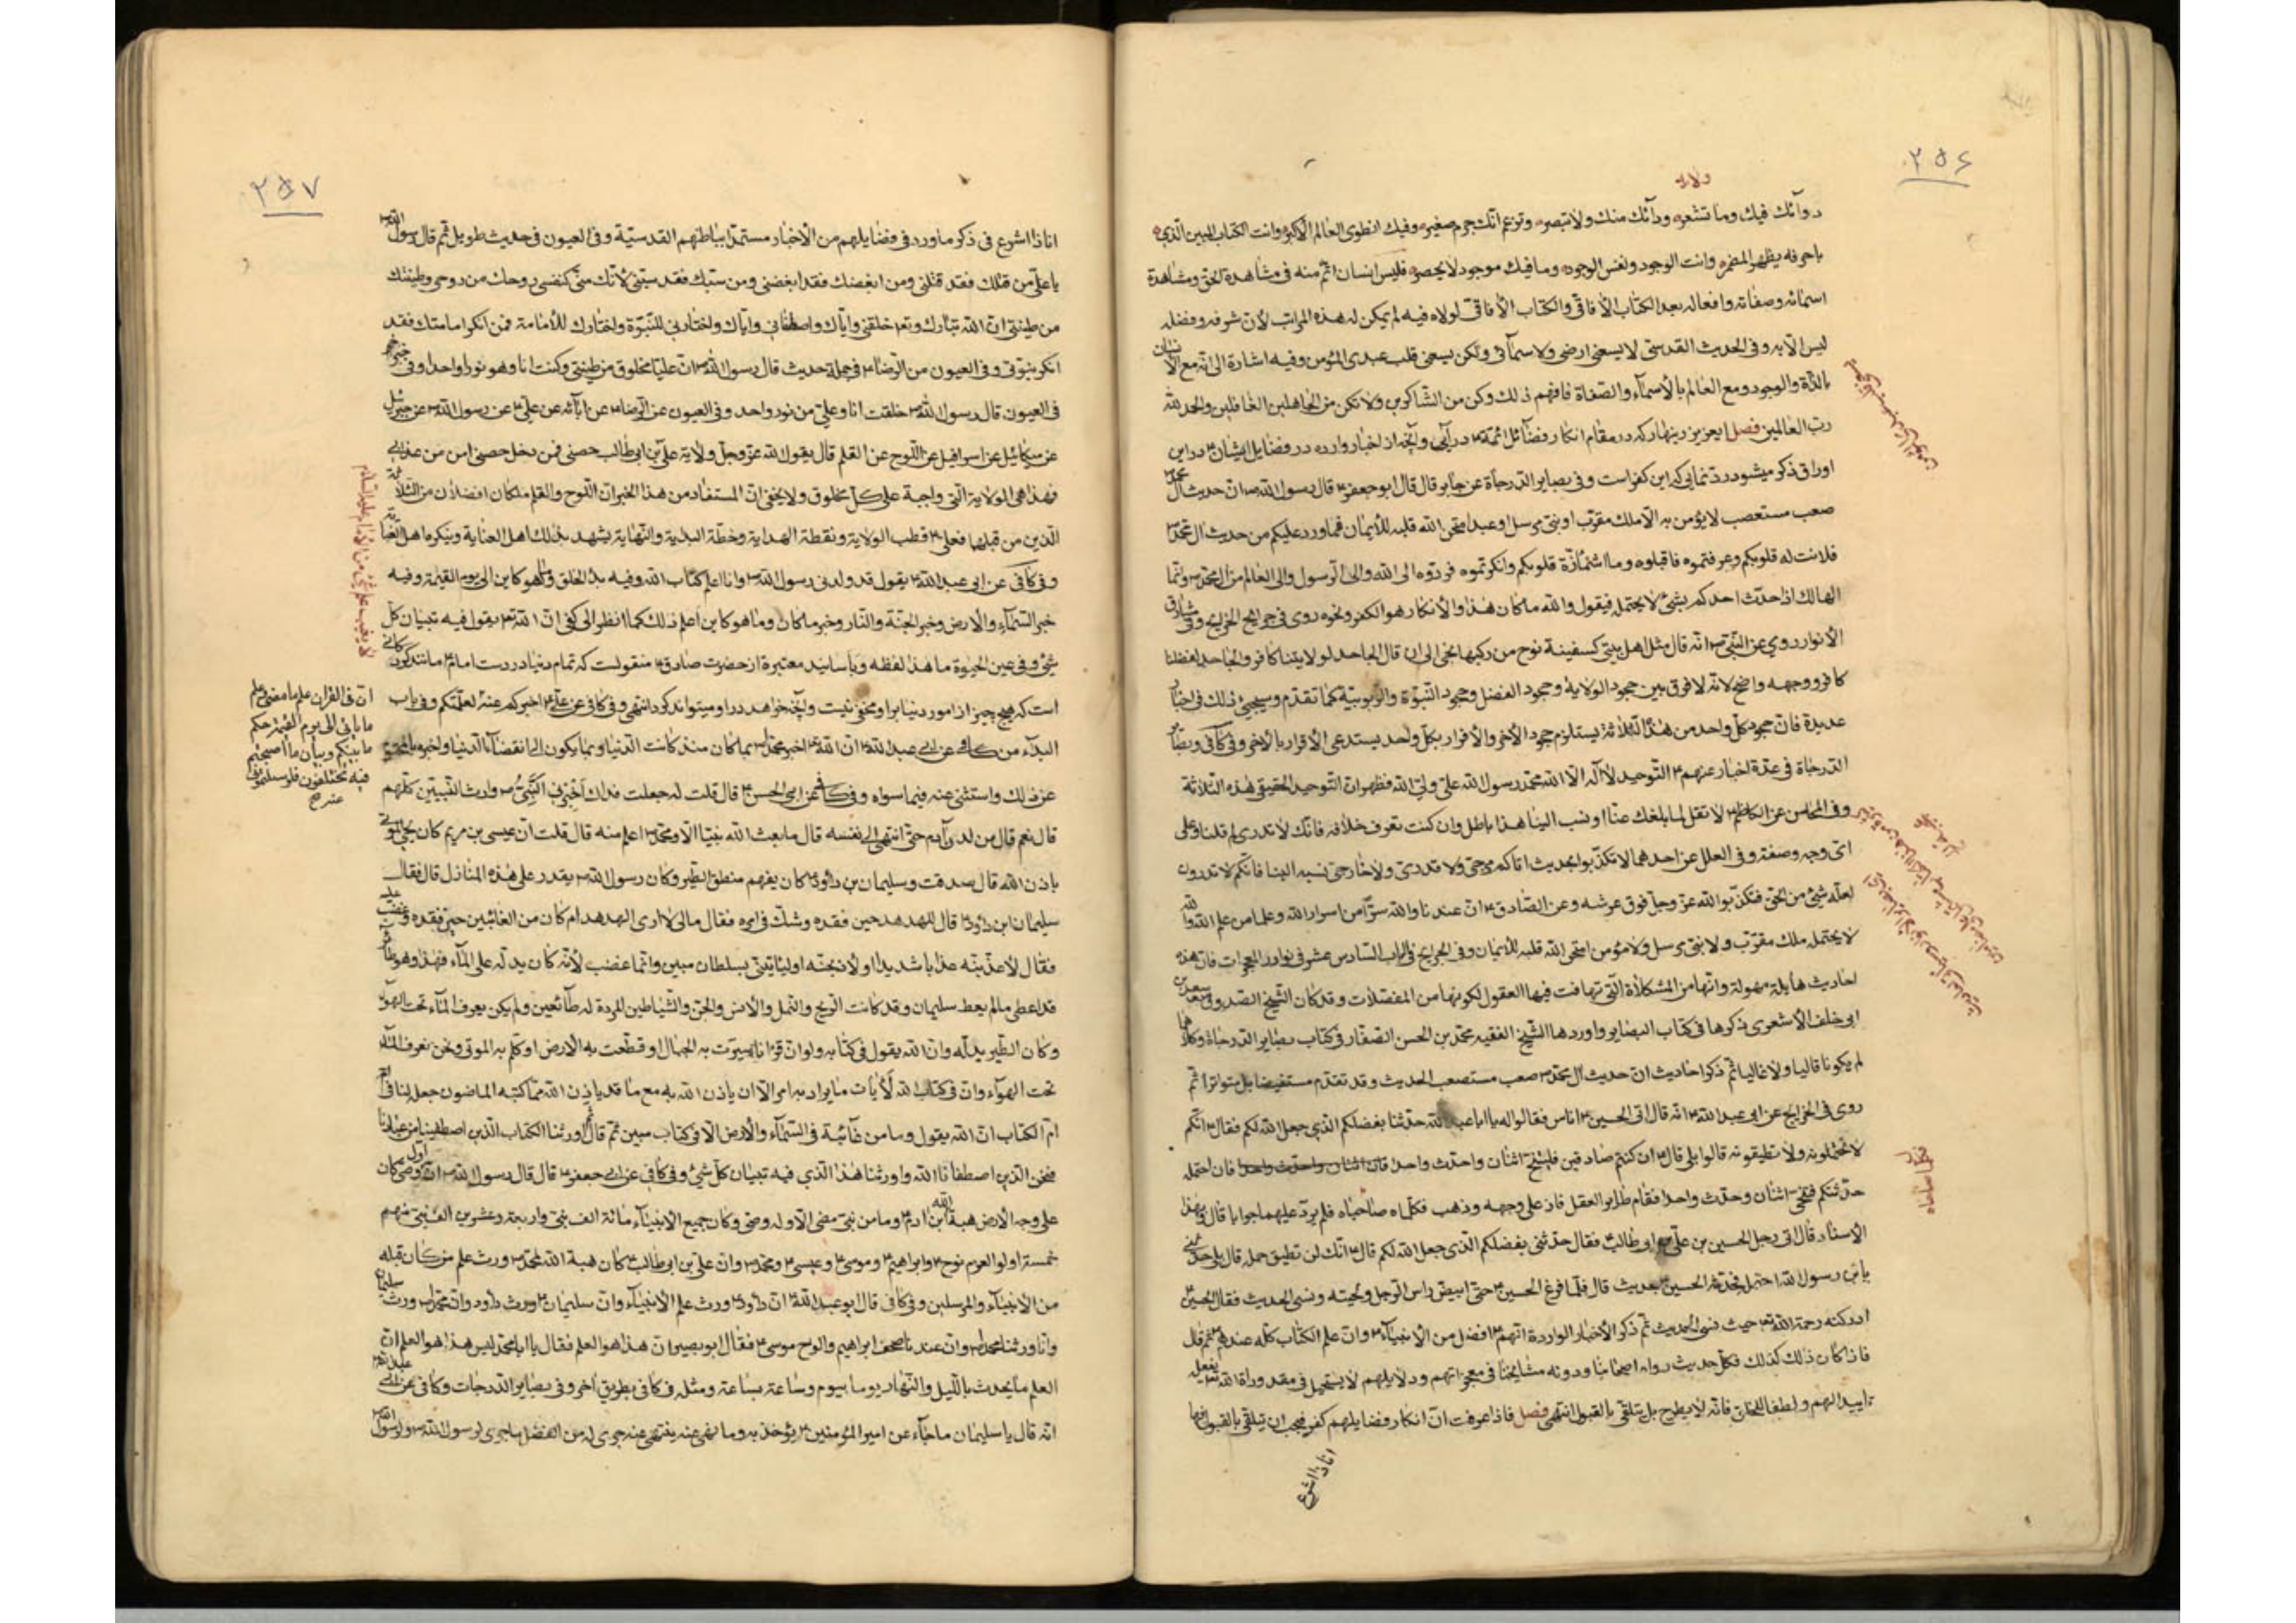 ٢٥٦
دوائك فيك وما تشعره ودائك منك ولا تبصره وتزعم انك جرم صغيره وفيك انطوى العالم الاكبره وانت الكتاب المبين الذي
باحرفه يظهر المضمره وانت الوجود ونفس الوجوده وما فيك موجود لا يحصره فليس انسان اتم منه في مشاهدة الحق ومشاهدة
اسمائه وصفاته وافعاله بعد الكتاب الافاقي والكتاب الافاقي لولاه فيه لم يمكن له هذه المراتب لان شرفه وفضله
ليس الا به وفي الحديث القدسي لا يسعني ارضي ولا سمائي ولكن يسعني قلب عبدي المؤمن وفيه اشارة الى انه مع الانسان
بالذات والوجود ومع العالم بالاسماء والصفاة فافهم ذلك وكن من الشاكرين ولا تكن من الجاهلين الغافلين والحمد لله
رب العالمين فصل ايعزيز زينهار كه در مقام انكار فضائل ائمة ع در آيي وآنچه از اخبار وارده در فضايل ايشان ع در اين
اوراق ذكر ميشود رد نمايي كه اين كفر است وفي بصاير الدرجاة عن جابر قال قال ابو جعفر ع قال رسول الله ص ان حديث آل محمد
صعب مستصعب لا يؤمن به الا ملك مقرب او نبي مرسل او عبد امتحن الله قلبه للايمان فما ورد عليكم من حديث ال محمد ص
فلانت له قلوبكم وعرفتموه فاقبلوه وما اشمأزة قلوبكم وانكرتموه فردوه الى الله والى الرسول والى العالم من ال محمد ص وانما
الهالك اذا حدث احدكم بشئ لا يحتمله فيقول والله ما كان هذا والانكار هو الكفر ونحوه روي في جرايح الخرايج وفي مشارق
الانوار روي عن النبي ص انه قال مثل اهل بيتي كسفينة نوح من ركبها نجى الى ان قال الجاحد لولايتنا كافر والجاحد لفضلنا
كافر ووجهه واضح لانه لا فرق بين جحود الولاية وجحود الفضل وجحود النبوة والربوبية كما تقدم وسيجيئ ذلك في اخبار
عديدة فان جحود كل واحد من هذا الثلاثة يستلزم جحود الاخر والاقرار بكل واحد يستدعي الاقرار بالاخر وفي كافي وبصائر
الدرجاة في عدة اخبار عنهم ع التوحيد لا اله الا الله محمد رسول الله علي ولي الله فظهر ان التوحيد الحقيقي هذه الثلاثة
وفي المحاسن عن الكاظم ع لا تقل لما بلغك عنا او نسب الينا هذا باطل وان كنت تعرف خلافه فانك لا تدري لم قلنا وعلى
اي وجه وصفته وفي العلل عن احدهما لا تكذبوا بحديث اتاكم مرجئ ولا قدري ولا خارجي نسبه الينا فانكم لا تدرون
لعله شئ من الحق فتكذبوا الله عز وجل فوق عرشه وعن الصادق ع ان عندنا والله سرا من اسرار الله وعلما من علم الله والله
لا يحتمله ملك مقرب ولا نبي مرسل ولا مؤمن امتحن الله قلبه للايمان وفي الخرايج في الباب السادس عشر في نوادر المعجزات فان هذه
احاديث هايلة مهولة وانها من المشكلاة التي تهافت فيها العقول لكونها من المفضلات وقد كان الشيخ الصدوق سعد بن
ابي خلف الاشعري ذكرها في كتاب البصاير واوردها الشيخ الفقيه محمد بن الحسن الصفار في كتاب بصاير الدرجاة وكلاهما
لم يكونا قاليا ولا غاليا ثم ذكر احاديث ان حديث آل محمد ص صعب مستصعب الحديث وقد تقدم مستفيضا بل متواترا ثم
روي في الخرايج عن ابي عبد الله ع انه قال اتى الحسين ع اناس فقالوا له يا ابا عبد الله حدثنا بفضلكم الذي جعل الله لكم فقال ع انكم
لا تحتملونه ولا تطيقونه قالوا بلى قال ع ان كنتم صادقين فليتنح اثنان واحدث واحدا فان اثنان واحدث واحدا فان احتمله
حدثتكم فتنحى اثنان وحدث واحدا فقام طاير العقل فاذ على وجهه وذهب فكلماه صاحباه فلم يرد عليهما جوابا قال وبهذا
الاسناد قال اتى رجل الحسين بن علي بن ابي طالب ع فقال حدثني بفضلكم الذي جعل الله لكم قال ع انك لن تطيق حمله قال بلى حدثني
يابن رسول الله احتمل فحدثه الحسين ع بحديث قال فلما فرغ الحسين ع حتى ابيض راس الرجل ولحيته ونسي الحديث فقال الحسين ع
ادركته رحمة الله تع حيث نسي الحديث ثم ذكر الاخبار الواردة انهم ع افضل من الانبياء ع وان علم الكتاب كله عندهم ثم قال
فاذا كان ذلك كذلك فكل حديث رواه اصحابنا ودونه مشايخنا في معجزاتهم ودلايلهم لا يستحيل في مقدوراة الله تع يفعله
تاييدا لهم ولطفا للخلق فانه لا يطرح بل يتلقى بالقبول انتهى فصل فاذا عرفت ان انكار فضايلهم كفر فيجب ان تتلقى بالقبول فها
انا ذا اشرع
٢٥٧
انا ذا اشرع في ذكر ما ورد في فضايلهم من الاخبار مستمدا بباطنهم القدسية وفي العيون في حديث طويل ثم قال رسول الله ص
يا علي من قتلك فقد قتلني ومن ابغضك فقد ابغضني ومن سبك فقد سبني لانك مني كنفسي روحك من روحي وطينتك
من طينتي ان الله تبارك وتع خلقني واياك واصطفاني واياك واختارني للنبوة واختارك للامامة فمن انكر امامتك فقد
انكر بنبوتي وفي العيون من الرضا ع في جملة حديث قال رسول الله ص ان عليا مخلوق من طينتي وكنت انا وهو نورا واحدا وفي خبر اخر
في العيون قال رسول الله ص خلقت انا وعلي من نور واحد وفي العيون عن الرضا ع عن ابائه عن علي ع عن رسول الله ص عن جبرئيل
عن ميكائيل عن اسرافيل عن اللوح عن القلم قال يقول الله عز وجل ولاية علي بن ابي طالب حصني فمن دخل حصني امن من عذابي
فهذا هي الولاية التي واجبة على كل مخلوق ولا يخفى ان المستفاد من هذا الخبر ان اللوح والقلم ملكان افضلان من الثلاثة
الذين من قبلهما فعلي ع قطب الولاية ونقطة الهداية وخطة البداية والنهاية يشهد بذلك اهل العناية وينكره اهل الغباوة
وفي كافي عن ابي عبد الله ع يقول قد ولدني رسول الله ص وانا اعلم كتاب الله وفيه بدء الخلق وما هو كاين الى يوم القيمة وفيه
خبر السماء والارض وخبر الجنة والنار وخبر ما كان وما هو كاين اعلم ذلك كما انظر الى كفي ان الله تع يقول فيه تبيان كل
شئ وفي عين الحيوة ما هذا لفظه وباسانيد معتبرة از حضرت صادق ع منقولست كه تمام دنيا در دست امام ع مانند گردكاني
است كه هيچ چيز از امور دنيا برا و مخفي نيست وآنچه خواهد در او ميتواند كرد انتهى وفي كافي عن علي ع اخبركم عنه لعلمتكم وفي باب
البداء من كافي عن ابي عبد الله ع ان الله تع اخبر محمد ص بما كان منذ كانت الدنيا وبما يكون الى انقضاء الدنيا واخبره بالمحتوم
من ذلك واستثنى عنه فيما سواه وفي كافي عن ابي الحسن ع قال قلت له جعلت فداك اخبرني النبي ص وارث النبيين كلهم
قال نعم قال من لدن آدم حتى انتهى الى نفسه قال ما بعث الله نبيا الا ومحمد ص اعلم منه قال قلت ان عيسى بن مريم كان يحيي الموتى
باذن الله قال صدقت وسليمان بن داود ع كان يفهم منطق الطير وكان رسول الله ص يقدر على هذه المنازل قال فقال
سليمان ابن داود ع قال للهدهد حين فقده وشك في امره فقال مالي لا ارى الهدهد ام كان من الغائبين حين فقده وغضب عليه
فقال لاعذبنه عذابا شديدا او لاذبحنه او ليأتيني بسلطان مبين وانما غضب لانه كان يدله على الماء فهذا وهو طاير
قد اعطي ما لم يعط سليمان وقد كانت الريح والنمل والانس والجن والشياطين المردة له طائعين ولم يكن يعرف الماء تحت الهواء
وكان الطير يدله وان الله يقول في كتابه ولو ان قرانا سيرت به الجبال او قطعت به الارض او كلم به الموتى ونحن نعرف الماء
تحت الهواء وان في كتاب الله لايات ما يراد به امر الا ان ياذن الله به مع ما قد ياذن الله مما كتبه الماضون جعله لنا في ام
ام الكتاب ان الله يقول وما من غائبة في السماء والارض الا في كتاب مبين ثم قال ثم اورثنا الكتاب الذين اصطفينا من عبادنا
فنحن الذين اصطفانا الله واورثنا هذا الذي فيه تبيان كل شئ وفي كافي عن ابي جعفر ع قال قال رسول الله ص ان اول وصي كان
على وجه الارض هبة الله ابن ادم ع وما من نبي مضى الا وله وصي وكان جميع الانبياء مائة الف نبي واربعة وعشرين الف نبي منهم
خمسة اولو العزم نوح ع وابراهيم ع وموسى ع وعيسى ع ومحمد ص وان علي بن ابي طالب ع كان هبة الله لمحمد ص ورث علم من كان قبله
من الانبياء والمرسلين وفي كافي قال ابو عبد الله ع ان داود ع ورث علم الانبياء وان سليمان ع ورث داود وان محمدا ص ورث سليمان
وانا ورثنا محمدا ص وان عندنا صحف ابراهيم والواح موسى ع فقال ابو بصير ان هذا هو العلم فقال يا ابا محمد ليس هذا هو العلم ان
العلم ما يحدث بالليل والنهار يوما بيوم وساعة بساعة ومثله في كافي بطريق اخر وفي بصاير الدرجات وكافي عن ابي عبد الله ع
انه قال يا سليمان ما جاء عن امير المؤمنين ع يؤخذ به وما نهى عنه ينتهى عنه جرى له من الفضل ما جرى لرسول الله ص ولرسول الله ص
لا يغيب علم شئ من الامام عليه السلام
ان في القران علم ما مضى وعلم
ما ياتي الى يوم القيمة وحكم
ما بينكم وبيان ما اصبحتم
فيه تختلفون فلو سئلتموني
عنه صح